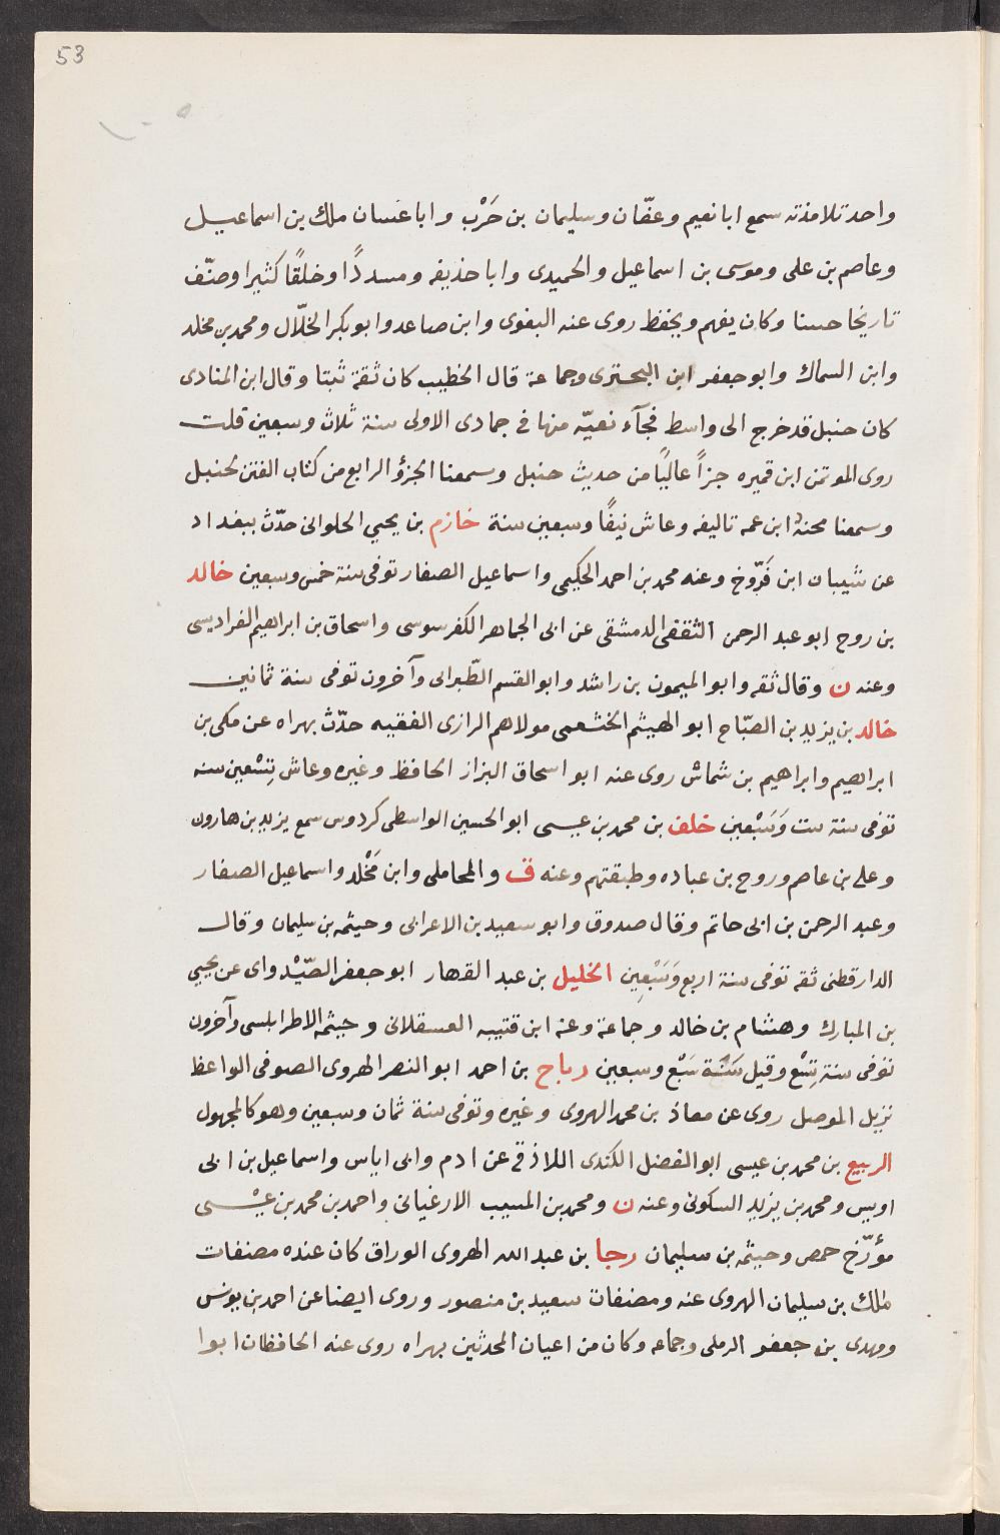 53
واحد تلامذته سمع ابا نعيم وعفّان وسليمان بن حَرْب وابا غسان ملك بن اسماعيل
وعاصم بن على وموسى بن اسماعيل والحميدى وابا حذيفه ومسددًا وخلقًا كثيرا وصنّف
تاريخا حسنا وكان يفهم ويحفظ روى عنه البغوى وابن صاعد وابو بكر الخلّال ومحمد بن مخلد
وابن السماك وابو جعفر ابن البحترى وجماعة قال الخطيب كان ثقة ثبتا وقال ابن المنادى
كان حنبل قد خرج الى واسط فجآء نعيّه منها فى جمادى الاولى سنة ثلاث وسبعين قلت
روى الموتمن ابن قميره جزاً عاليًا من حديث حنبل وسمعنا الجزؤ الرابع من كتاب الفتن لحنبل
وسمعنا محنة ابن عمه تاليفه وعاش نيفًا وسبعين سنة خازم بن يحيي الحلوانى حدّث ببغداد
عن شيبان ابن فَرّوخ وعنه محمد بن احمد الحكيمى واسماعيل الصفار توفى سنة خمس وسبعين خالد
بن روح ابو عبد الرحمن الثقفى الدمشقى عن ابى الجماهر الكفرسوسى واسحاق بن ابراهيم الفراديسى
وعنه ن وقال ثقه وابو الميمون بن راشد وابو القسم الطّبرانى وآخرون توفى سنة ثمانين
خالد بن يزيد بن الصبّاح ابو الهيثم الخثعمى مولاهم الرازى الفقيه حدّث بهراه عن مكى بن
ابراهيم وابراهيم بن شماش روى عنه ابو اسحاق البزاز الحافظ وغيره وعاش تِسْعين سنه
توفى سنة ست وَسَبْعين خلف بن محمد بن عيسى ابو الحسين الواسطى كردوس سمع يزيد بن هارون
وعلى بن عاصم وروح بن عباده وطبقتهم وعنه ق والمحاملى وابن مَخْلد واسماعيل الصفار
وعبد الرحمن بن ابى حاتم وقال صدوق وابو سعيد بن الاعرابى وحيثمه بن سليمان وقال
الدارقطنى ثقه توفى سنة اربع وَسَبْعِين الخليل بن عبد القهار ابو جعفر الصّيْداوى عن يحيي
بن المبارك وهشام بن خالد وجماعة وعنه ابن قتيبه العسقلانى وحيثمه الاطرابلسى وآخرون
توفى سنة تِسْع وقيل سَنَة سَبْع وسبعين رباح بن احمد ابو النصر الهروى الصوفى الواعظ
نزيل الموصل روى عن معاذ بن محمد الهروى وغيره وتوفى سنة ثمان وسبعين وهو كالمجهول
الربيع بن محمد بن عيسى ابو الفضل الكندى اللاذقى عن ادم وابى اياس واسماعيل بن ابى
اويس ومحمد بن يزيد السكونى وعنه ن ومحمد بن المسيب الارغيانى واحمد بن محمد بن عيْسى
مؤرّخ حمص وحيثمه بن سليمان رجا بن عبد الله الهروى الوراق كان عنده مصنفات
ملك بن سليمان الهروى عنه ومصنفات سعيد بن منصور وروى ايضا عن احمد بن يونس
ومهدى بن جعفر الرملى وجماعه وكان من اعيان المحدثين بهراه روى عنه الحافظان ابوا